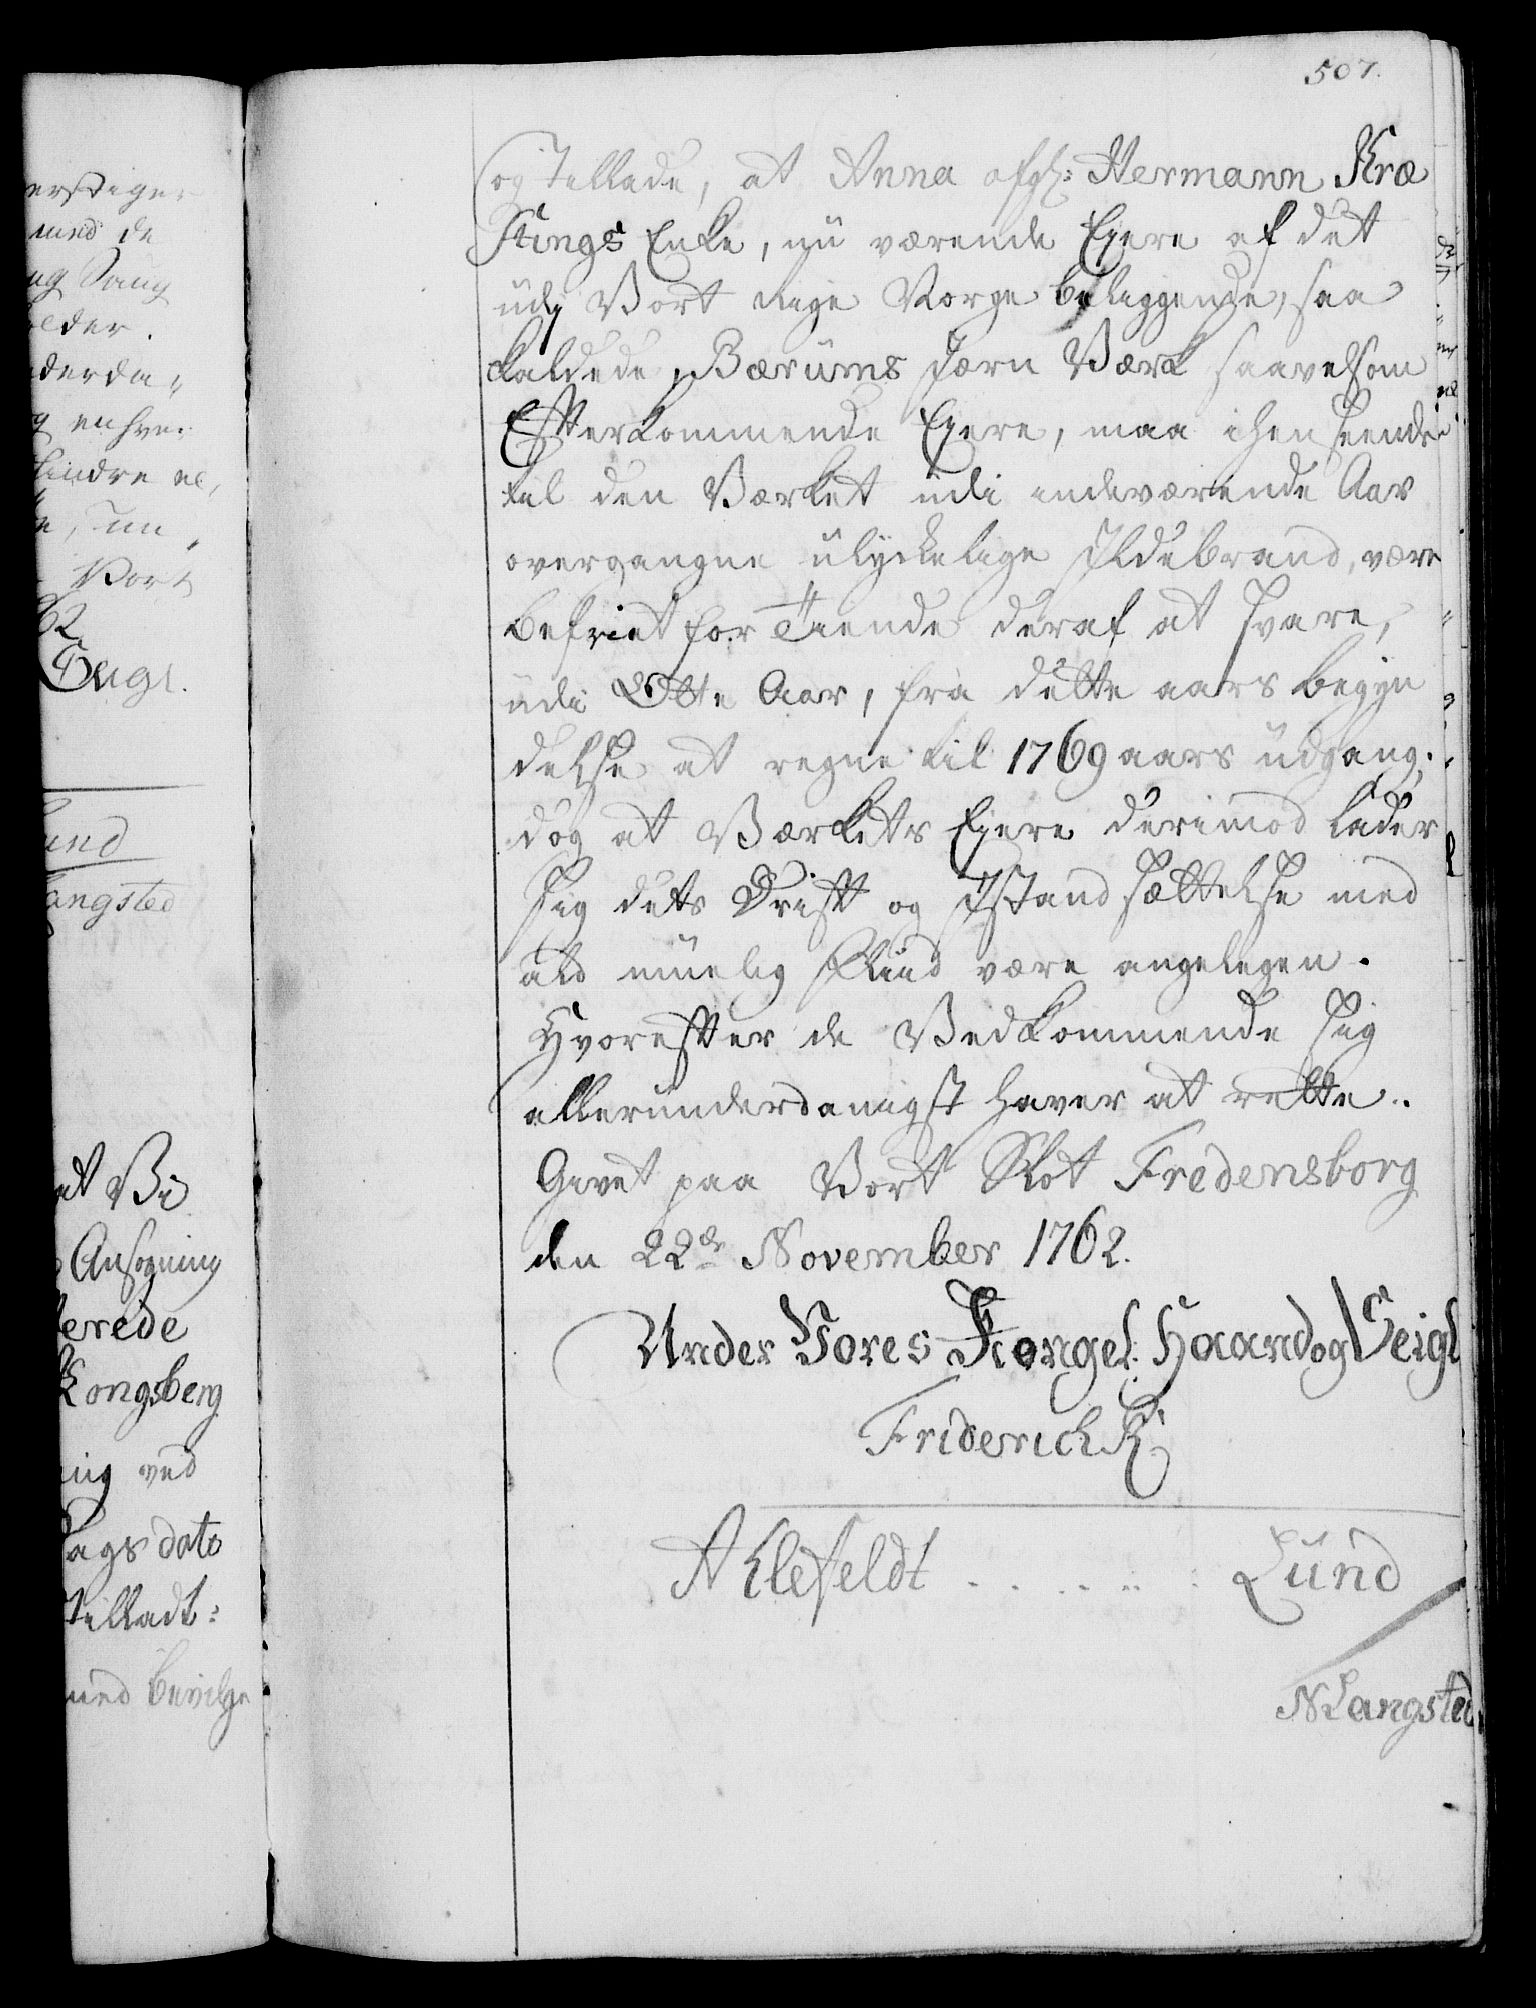 507.
og Tillade, at Anna afgl: Hermann Kræ
Stings Enke, nu værende Eyere af det
udj Vort rige Norge beliggende, saa
kaldede Bærums Jærn Værk saavelsom
Effterkommende Eyere, maa ihenseende
til den Værket udi indeværende Aar
overgangne ulyckelige Ildebrand, være
befriet for Tiende deraf at svare,
udi Otte Aar, fra dette aars begyn
delse at regne til 1769 aars udgang.
dog at Værkets Eyere derimod lader
sig dets Drifft og Istandsættelse med
ald muelig Fliid være angelegen.
Hvorefter de Vedkommende sig
allerunderdanigst haver at rette.
Givet paa Vort Slot Fredensborg
den 22de November 1762.
Under Vores Kongel: Haand og Seigl
Friderich R.
Ahlefeldt . . . . . . Lund
N Langsted
erstige-
mnd de
older.
derda-
og enhver
hindre el,
Vort
62.
Seigl.
Lund
Langsted
at Vi
Ansøgning
lerede
Kongsberg
ing ved
Dags dato
tilladt:
med bevilge